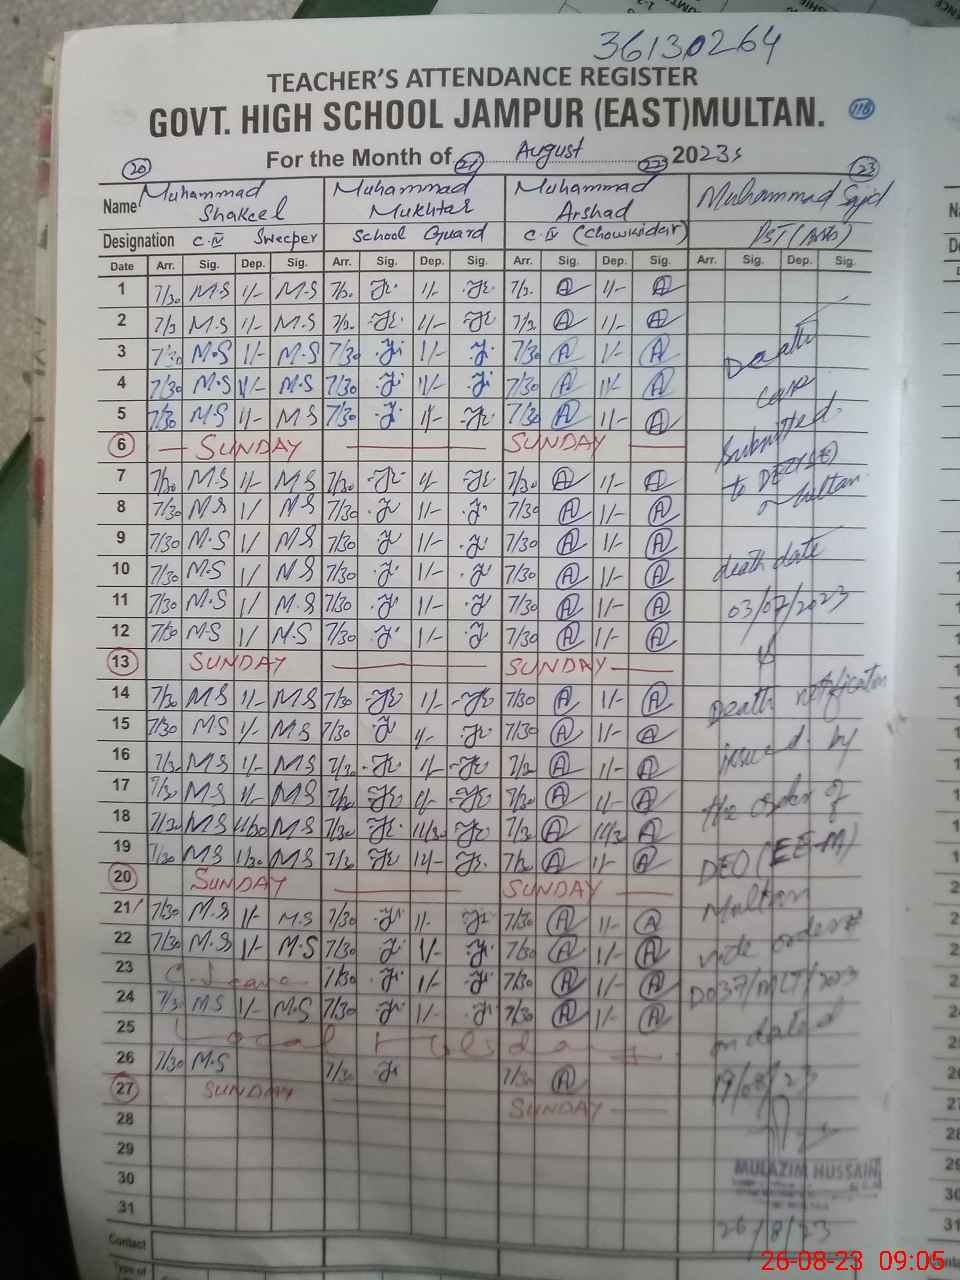 36130264
TEACHER'S ATTENDANCE REGISTER
GOVT. HIGH SCHOOL JAMPUR (EAST)MULTAN.
118
For the Month of August 2023
20 21 22 23
Name Muhammad Shakeel Muhammad Mukhtar Muhammad Arshad Muhammad Sajid
Designation C.IV Sweeper School Guard C.IV (Chowkidar) PST
Date Arr. Sig. Dep. Sig. Arr. Sig. Dep. Sig. Arr. Sig. Dep. Sig. Arr. Sig. Dep. Sig.
1 7/30 M.S 1/- M.S 7/30 1/- 7/30 A 1/- A
2 7/30 M.S 1/- M.S 7/30 1/- 7/30 A 1/- A
3 7/30 M.S 1/- M.S 7/30 1/- 7/30 A 1/- A Death
4 7/30 M.S 1/- M.S 7/30 1/- 7/30 A 1/- A case
5 7/30 M.S 1/- M.S 7/30 1/- 7/30 A 1/- A Submitted
6 SUNDAY SUNDAY
7 7/30 M.S 1/- M.S 7/30 1/- 7/30 A 1/- A to
8 7/30 M.S 1/ M.S 7/30 1/- 7/30 A 1/- A Multan
9 7/30 M.S 1/ M.S 7/30 1/- 7/30 A 1/- A
10 7/30 M.S 1/ M.S 7/30 1/- 7/30 A 1/- A death date
11 7/30 M.S 1/ M.S 7/30 1/- 7/30 A 1/- A 03/07/2023
12 7/30 M.S 1/ M.S 7/30 1/- 7/30 A 1/- A
13 SUNDAY SUNDAY
14 7/30 M.S 1/- M.S 7/30 1/- 7/30 A 1/- A Death notification
15 7/30 M.S 1/- M.S 7/30 1/- 7/30 A 1/- A issued by
16 7/30 M.S 1/- M.S 7/30 1/- 7/30 A 1/- A
17 7/30 M.S 1/- M.S 7/30 1/- 7/30 A 1/- A the order of
18 7/30 M.S 11/30 M.S 7/30 11/30 7/30 A 11/30 A
19 7/30 M.S 1/30 M.S 7/30 7/30 A 1/- A DEO (EE-M)
20 SUNDAY SUNDAY
21 7/30 M.S 1/- M.S 7/30 1/- 7/30 A 1/- A Multan
22 7/30 M.S 1/- M.S 7/30 1/- 7/30 A 1/- A vide order#
23 C-Leave 7/30 1/- 7/30 A 1/- A D037/MLT/2023
24 7/30 M.S 1/- M.S 7/30 1/- 7/30 A 1/- A
25 Local on dated
26 7/30 M.S 7/30 7/30 A 19/08/23
27 SUNDAY SUNDAY
28
29
MULAZIM HUSSAIN
30
31 26/8/23
Contact
Type of
26-08-23 09:05